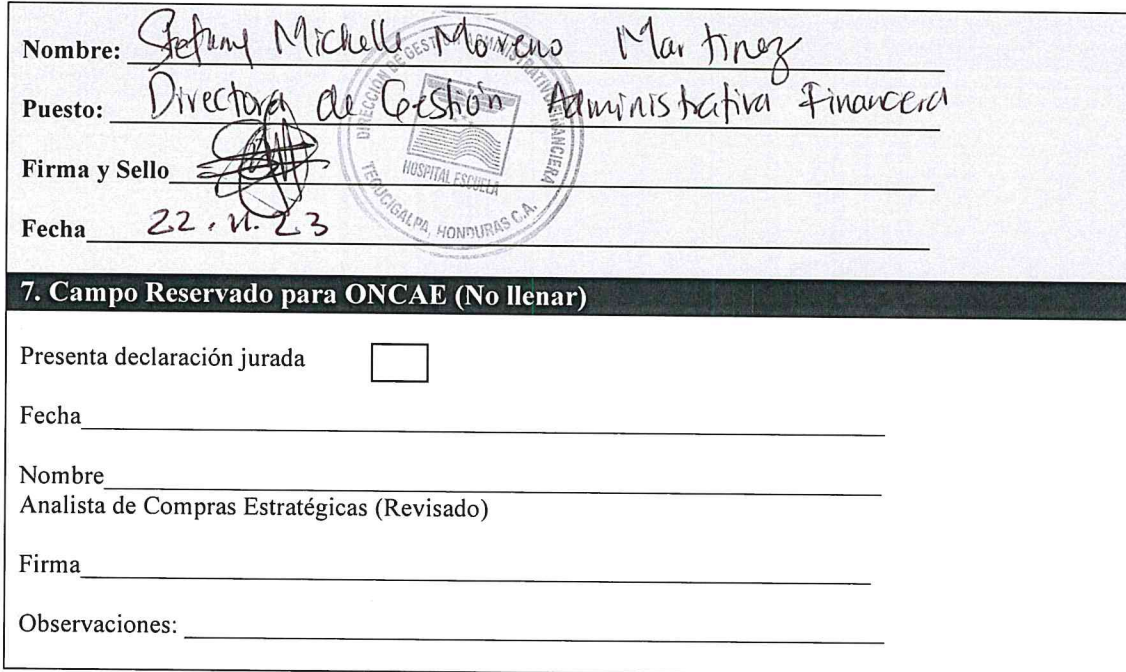 Nombre: Stefany Michelle Moreno Martinez
Puesto: Directora de Gestión Administrativa Financera
Firma y Sello
DIRECCIÓN DE GESTIÓN ADMINISTRATIVA FINANCIERA
HOSPITAL ESCUELA
TEGUCIGALPA, HONDURAS C.A.
Fecha 22.11.23
7. Campo Reservado para ONCAE (No llenar)
Presenta declaración jurada
Fecha
Nombre
Analista de Compras Estratégicas (Revisado)
Firma
Observaciones: